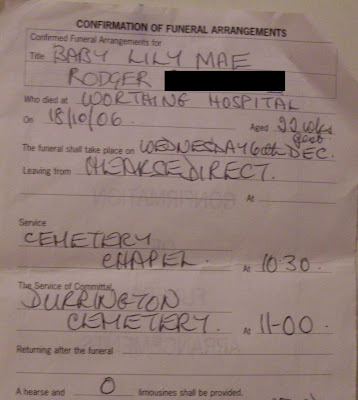 CONFIRMATION OF FUNERAL ARRANGEMENTS
Confirmed Funeral Arrangements for
Title BABY LILY MAE
RODGER
Who died at WORTHING HOSPITAL
On 18/10/06. Aged 22 wks
gest.
The funeral shall take place on WEDNESDAY 6th DEC.
Leaving from HEARSE DIRECT.
At
Service
CEMETERY
CHAPEL. At 10:30.
The Service of Committal
DURRINGTON
CEMETERY. At 11-00.
Returning after the funeral
A hearse and 0 limousines shall be provided.